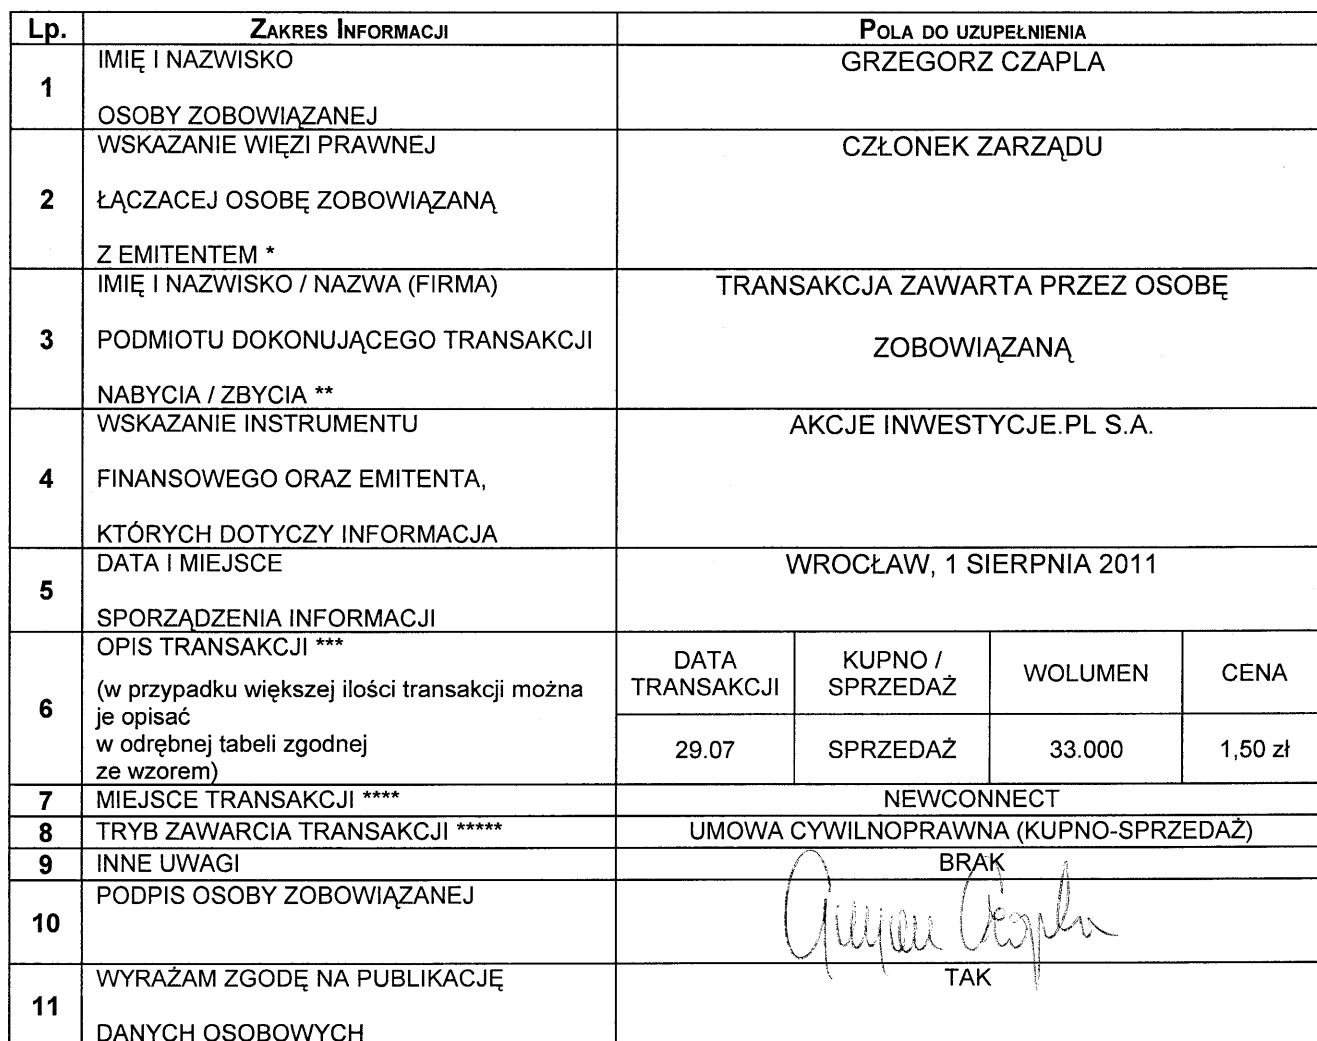 Lp. ZAKRES INFORMACJI POLA DO UZUPEŁNIENIA
1 IMIĘ I NAZWISKO
OSOBY ZOBOWIĄZANEJ
GRZEGORZ CZAPLA
2 WSKAZANIE WIĘZI PRAWNEJ
ŁĄCZACEJ OSOBĘ ZOBOWIĄZANĄ
Z EMITENTEM *
CZŁONEK ZARZĄDU
3 IMIĘ I NAZWISKO / NAZWA (FIRMA)
PODMIOTU DOKONUJĄCEGO TRANSAKCJI
NABYCIA / ZBYCIA **
TRANSAKCJA ZAWARTA PRZEZ OSOBĘ
ZOBOWIĄZANĄ
4 WSKAZANIE INSTRUMENTU
FINANSOWEGO ORAZ EMITENTA,
KTÓRYCH DOTYCZY INFORMACJA
AKCJE INWESTYCJE.PL S.A.
5 DATA I MIEJSCE
SPORZĄDZENIA INFORMACJI
WROCŁAW, 1 SIERPNIA 2011
6 OPIS TRANSAKCJI ***
(w przypadku większej ilości transakcji można
je opisać
w odrębnej tabeli zgodnej
ze wzorem)
DATA TRANSAKCJI KUPNO / SPRZEDAŻ WOLUMEN CENA
29.07 SPRZEDAŻ 33.000 1,50 zł
7 MIEJSCE TRANSAKCJI **** NEWCONNECT
8 TRYB ZAWARCIA TRANSAKCJI ***** UMOWA CYWILNOPRAWNA (KUPNO-SPRZEDAŻ)
9 INNE UWAGI BRAK
10 PODPIS OSOBY ZOBOWIĄZANEJ
11 WYRAŻAM ZGODĘ NA PUBLIKACJĘ
DANYCH OSOBOWYCH
TAK